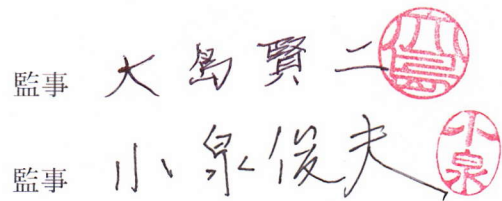 監事 大島賢二 大島
監事 小泉俊夫 小泉